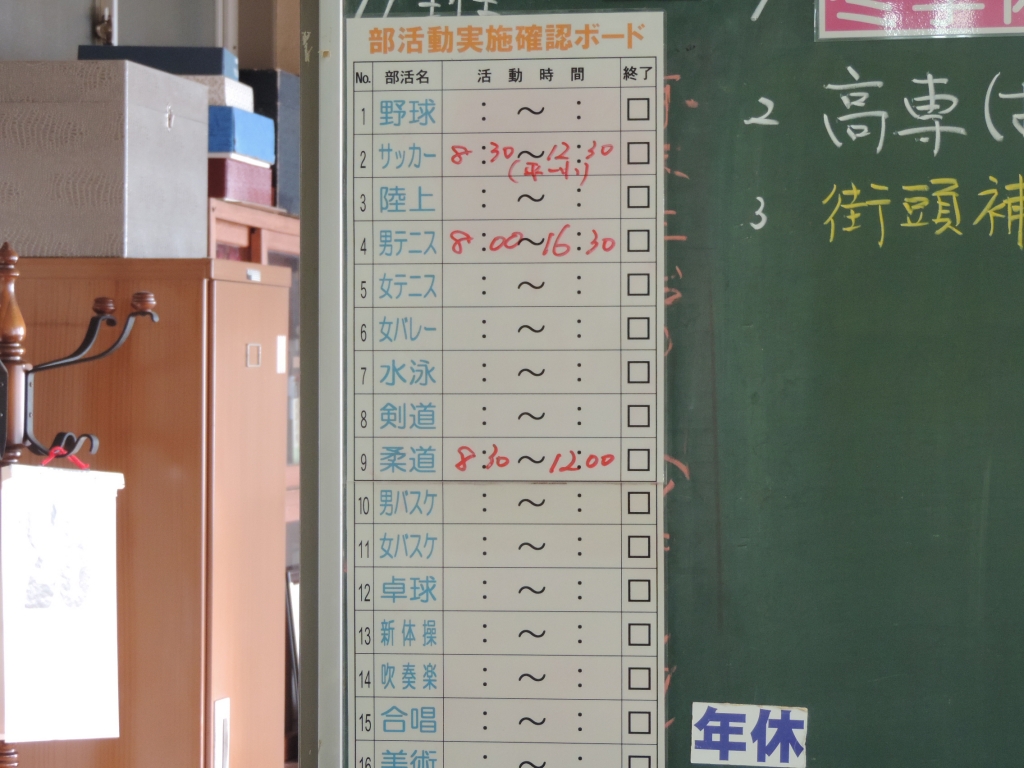 部活動実施確認ボード
No. 部活名 活動時間 終了
1 野球 : ～ : □
2 サッカー 8:30～12:30 □
3 陸上 : ～ : □
4 男テニス 8:00～16:30 □
5 女テニス : ～ : □
6 女バレー : ～ : □
7 水泳 : ～ : □
8 剣道 : ～ : □
9 柔道 8:30～12:00 □
10 男バスケ : ～ : □
11 女バスケ : ～ : □
12 卓球 : ～ : □
13 新体操 : ～ : □
14 吹奏楽 : ～ : □
15 合唱 : ～ : □
16 美術 : ～ : □
2 高専(
3 街頭補
年休